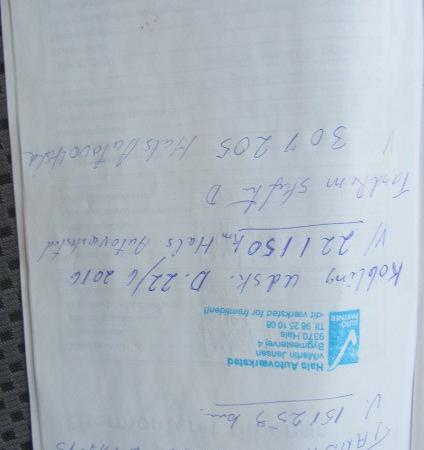 V. 151253 km.
Hals Autoværksted
v/Martin Jensen
Bygmestervej 4
9370 Hals
Tlf. 98 25 10 08
-dit værksted for fremtiden!!
AUTO-
PARTNER
Kobling udsk. D. 22/6 2016
V/ 221150 km Hals Autoværksted
Tandrem Skyftet D
V 307205 Hals Autoværksted